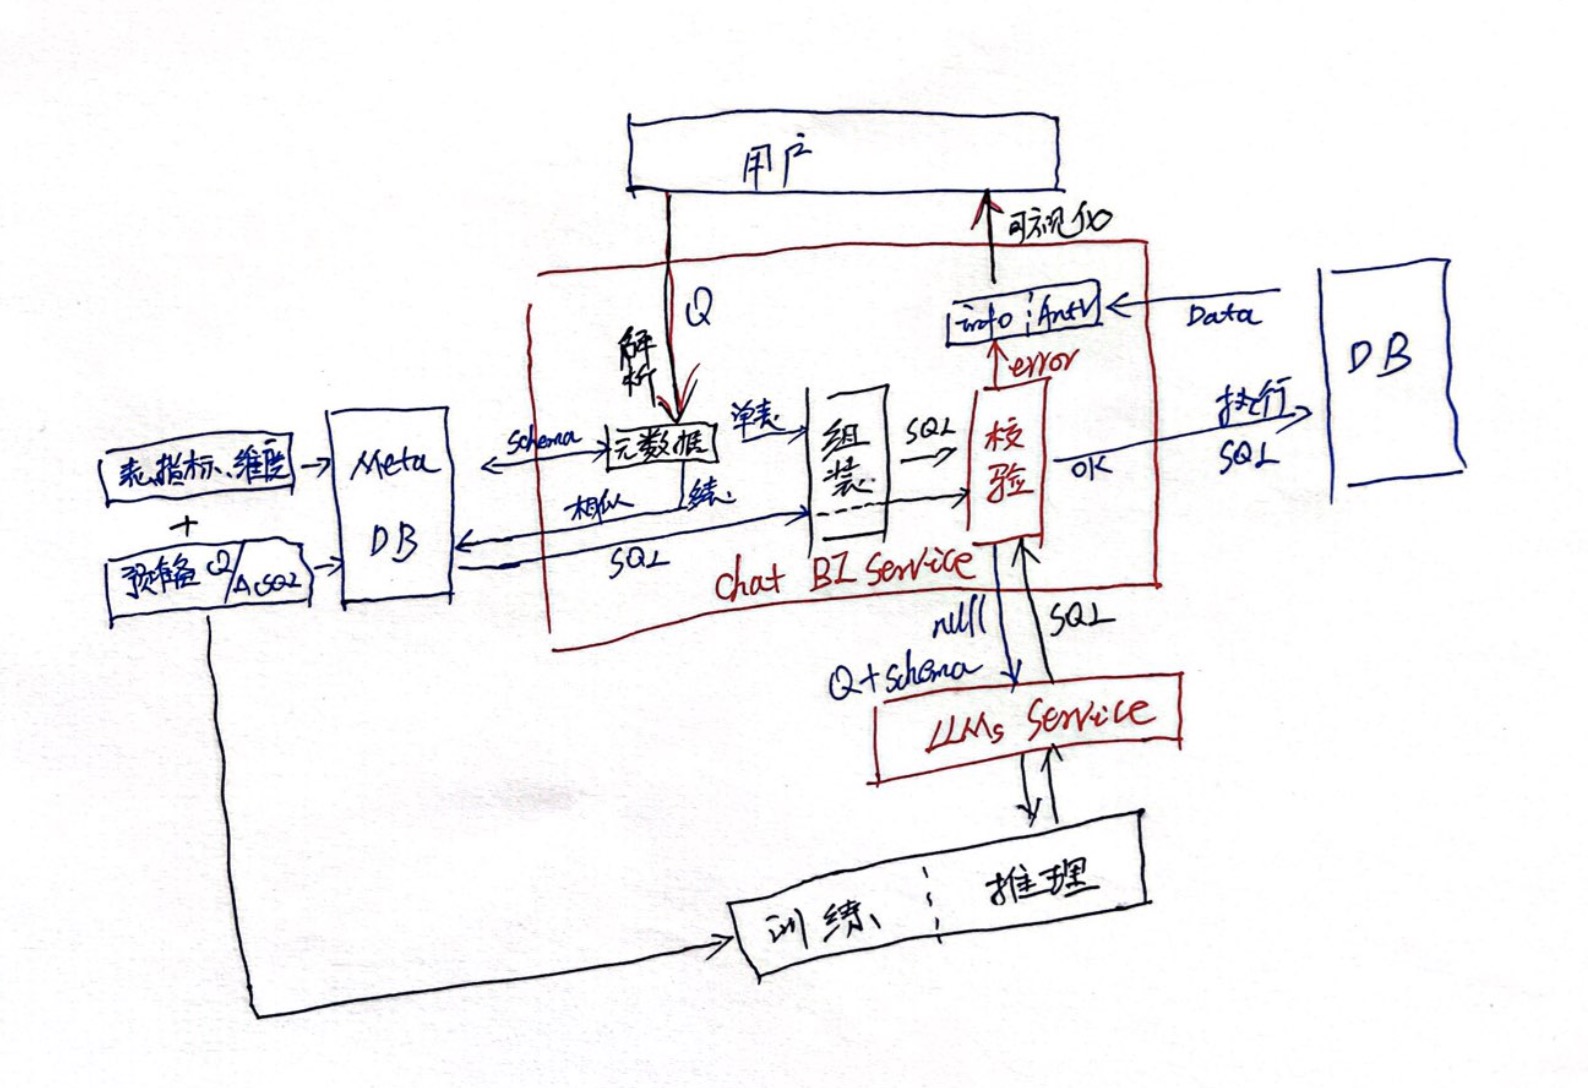 用户
可视化
Q
解析
info
AntV
Data
DB
error
执行
SQL
OK
Schema
元数据
单表
组装
SQL
校验
表、指标、维度
+
预准备 Q/A:SQL
Meta
DB
相似
SQL
Chat BI Service
null
SQL
Q+Schema
LLMs Service
训练
推理